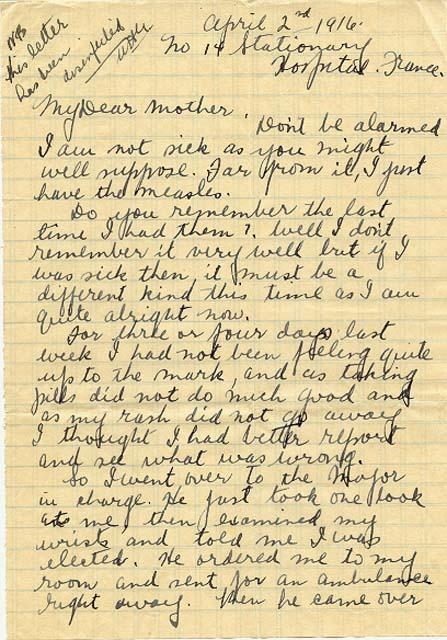 NB
this letter
has been
disinfected
April 2nd, 1916.
No 14 Stationary
Hospital. France.
My Dear Mother,
Don't be alarmed
I am not sick as you might
well suppose. Far from it, I just
have the measles.
Do you remember the last
time I had them? Well I don't
remember it very well but if I
was sick then, it must be a
different kind this time as I am
quite alright now.
For three or four days last
week I had not been feeling quite
up to the mark, and as taking
pills did not do much good and
as my rash did not go away
I thought I had better report
and see what was wrong.
So I went over to the Major
in charge. He just took one look
at me, then examined my
wrists and told me I was
elected. He ordered me to my
room and sent for an ambulance
right away. Then he came over